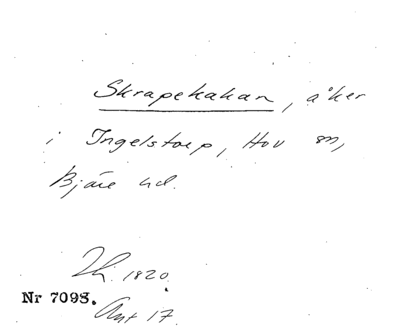 Skrapekakan, åker
i Ingelstorp, Hov sn,
Bjäre hd.
1820.
Nr 7098.
Ant 17